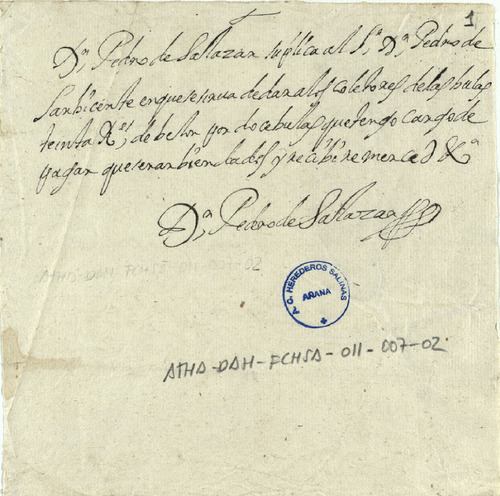 1
Dn Pedro de Sallazar suplica al Sr Dn Pedro de
Sanbicente en que se sirua de dar a los coletores de las bulas
treinta Rs de bellon por doce bulas que tengo cargo de
pagar que seran bien dados y recibire merced &a
Dn Pedro de Sallazar
ATHA-DAH-FCHSA-011-007-02
A. C. HEREDEROS SALINAS
AÑANA
ATHA-DAH-FCHSA-011-007-02